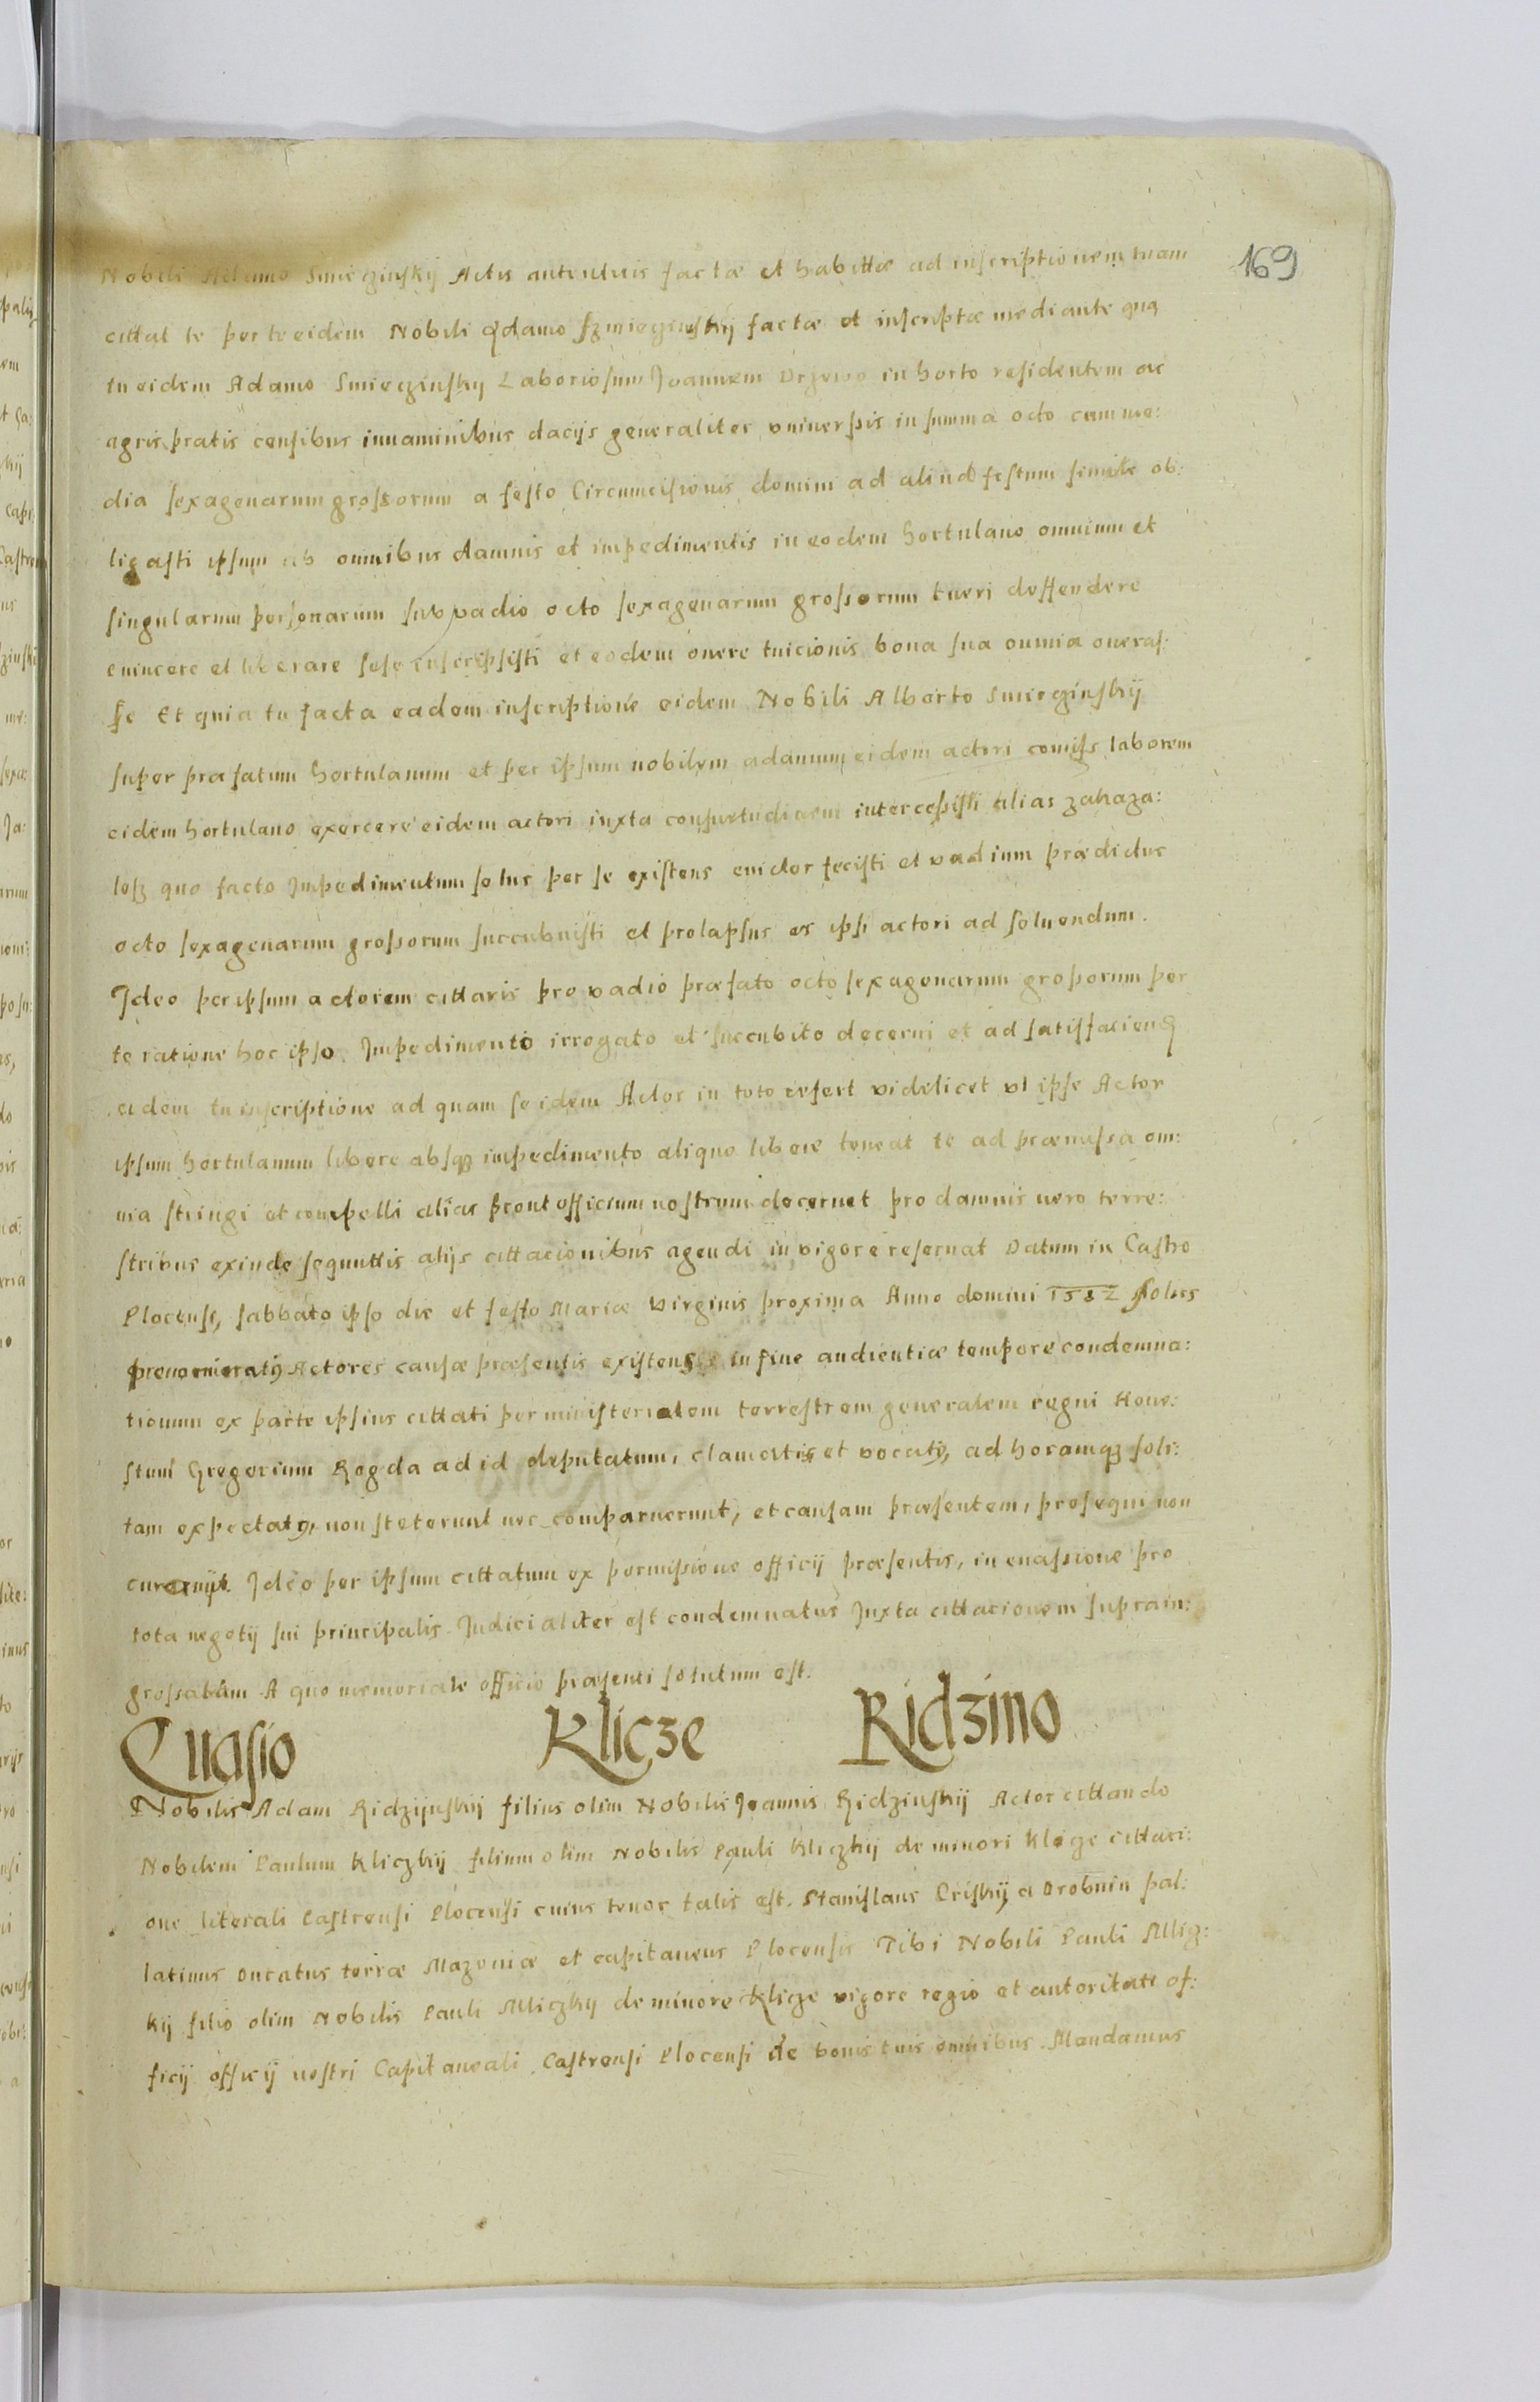 169
Nobili Adamo Smieczinskij Actis autentuis factæ et habittæ ad inscriptionem tuam
cittat te per te eidem Nobili Adamo Szmieczinskij factæ et inscriptæ mediante qua
tu eidem Adamo Smieczinskij Laboriosum Joannem Drzewo in horto residentem ac
agris, pratis censibus iuuaminibus dacijs generaliter vniuersis in summa octo cum me:
dia sexagenarum grossorum a festo Circumcisionis domini ad aliud festum simile ob:
ligasti ipsum ab omnibus damnis et impedimentis in eodem hortulano omnium et
singularum personarum sub vadio octo sexagenarum grossorum tueri deffendere
euincere et liberare sese inscripsisti et eodem onere tuicionis bona sua omnia oneras:
se Et quia tu facta eadem inscriptione eidem Nobili Alberto Smieczinskij
super præfatum hortulanum et per ipsum nobilem adamum eidem actori comiss laborem
eidem hortulano exercere eidem actori iuxta consuetudinem intercepisti alias zahaza:
lesz quo facto Impedimentum solus per se existens euictor fecisti et vadium prædictus
octo sexagenarum grossorum succubuisti et prolapsus es ipsi actori ad soluendum.
Ideo per ipsum actorem cittaris pro vadio præfato octo sexagenarum grossorum per
te ratione hoc ipso Impedimento irrogato et succubito decerni et ad satisfaciend
eidem tu inscriptione ad quam se idem Actor in toto refert videlicet vt ipse Actor
ipsum hortulanum libere absq3 impedimento aliquo libere teneat te ad præmissa om:
nia stringi et compelli alias prout officium nostrum decernet pro damnis uero terre:
stribus exinde sequuttis alijs cittacionibus agendi in vigore reseruat Datum in Castro
Plocensi, sabbato ipso die et festo Mariæ Virginis proxima Anno domini 1582 solus
prenominatus Actores causæ præsentis existens in fine audientiæ tempore condemna:
tionum ex parte ipsius cittati per ministerialem terrestrem generalem regni Hone:
stum Gregorium Rogda ad id deputatum, clamatis et vocatis, ad horamq3 soli:
tam expectatus, non steterunt nec comparuerunt, et causam præsentem, prosequi non
curarunt. Ideo per ipsum cittatum ex permissione officij præsentis, in euassione pro
tota negotij sui principalis Iudicialiter est condemnatus Juxta cittacionem suprain:
grossatam A quo memoriale officio præsenti solutum est.
Euasio Klicze Ridzino
Nobilis Adam Ridzijnskij filius olim Nobilis Joannis Ridzinskij Actor cittando
Nobilem Paulum Kliczkij filium olim Nobilis Pauli Kliczkij de minori Klicze cittaci:
one literali Castrensi Plocensi cuius tenor talis est. Stanislaus Criskij a Drobnin pal:
latinus Ducatus terræ Mazouiæ et capitaneus Plocensis Tibi Nobili Pauli Klicz:
kij filio olim Nobilis Pauli Kliczkij de minore Klicze vigore regio et autoritate of:
ficij officij nostri Capitaneali Castrensi Plocensi de bonis tuis omnibus Mandamus